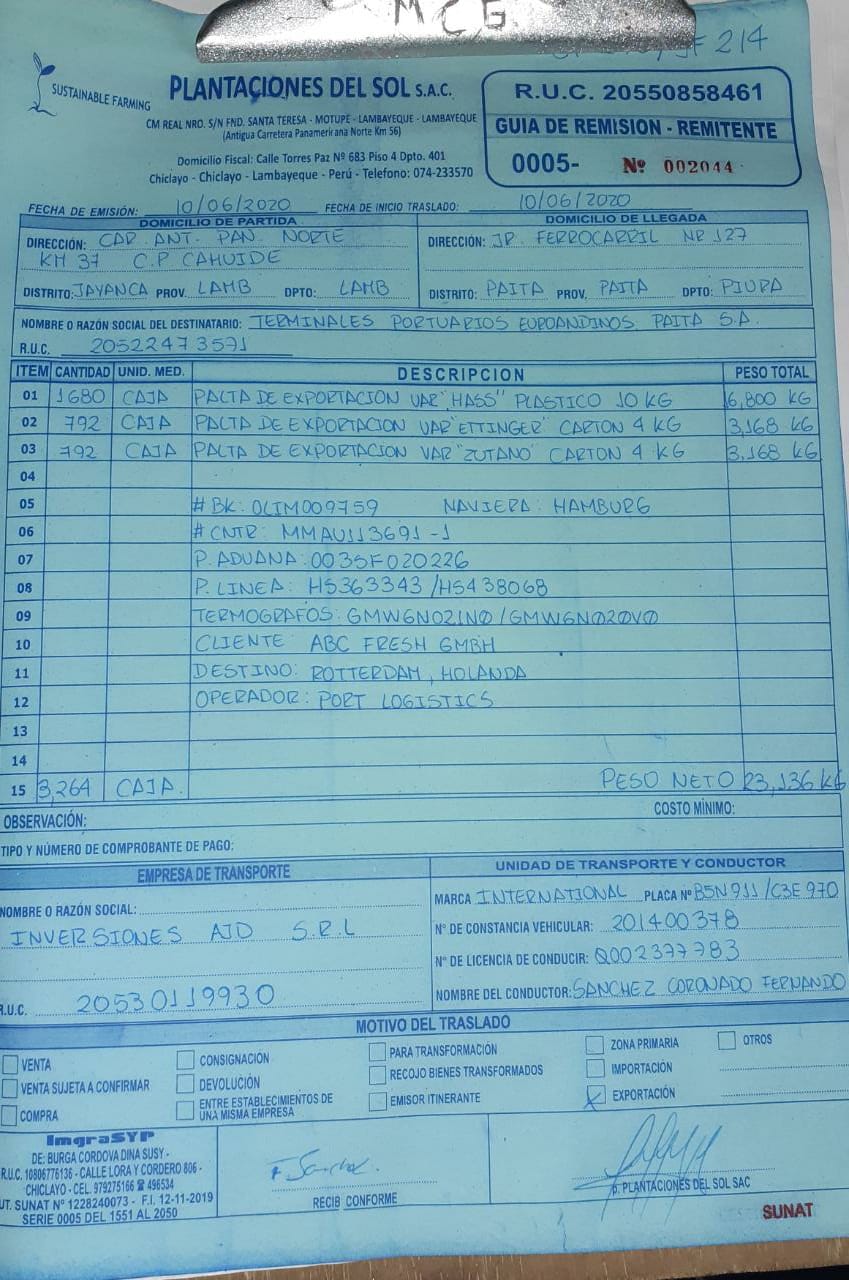 MCG
214
SUSTAINABLE FARMING
PLANTACIONES DEL SOL S.A.C.
CM REAL NRO. S/N FND. SANTA TERESA - MOTUPE - LAMBAYEQUE - LAMBAYEQUE
(Antigua Carretera Panamericana Norte Km 56)
Domicilio Fiscal: Calle Torres Paz Nº 683 Piso 4 Dpto. 401
Chiclayo - Chiclayo - Lambayeque - Perú - Telefono: 074-233570
R.U.C. 20550858461
GUIA DE REMISION - REMITENTE
0005- Nº 002044
FECHA DE EMISIÓN: 10/06/2020 FECHA DE INICIO TRASLADO: 10/06/2020
DOMICILIO DE PARTIDA DOMICILIO DE LLEGADA
DIRECCIÓN: CAR. ANT. PAN. NORTE DIRECCIÓN: JR. FERROCARRIL NR 127
KM 37 C.P CAHUIDE
DISTRITO: JAYANCA PROV. LAMB DPTO: LAMB DISTRITO: PAITA PROV. PAITA DPTO: PIURA
NOMBRE O RAZÓN SOCIAL DEL DESTINATARIO: TERMINALES PORTUARIOS EUROANDINOS PAITA S.A.
R.U.C. 20522473571
ITEM CANTIDAD UNID. MED. DESCRIPCION PESO TOTAL
01 1680 CAJA PALTA DE EXPORTACION VAR "HASS" PLASTICO 10 KG 16,800 KG
02 792 CAJA PALTA DE EXPORTACION VAR "ETTINGER" CARTON 4 KG 3,168 KG
03 792 CAJA PALTA DE EXPORTACION VAR "ZUTANO" CARTON 4 KG 3,168 KG
04
05 # BK: OLIM009759 NAVIERA: HAMBURG
06 # CNTR: MMAU113691-1
07 P. ADUANA: 0035F020226
08 P. LINEA: H5363343/H5438068
09 TERMOGRAFOS: GMW6N021N0/GMW6N020V0
10 CLIENTE: ABC FRESH GMBH
11 DESTINO: ROTTERDAM, HOLANDA
12 OPERADOR: PORT LOGISTICS
13
14
15 3,264 CAJA. PESO NETO 23,136 KG
OBSERVACIÓN: COSTO MÍNIMO:
TIPO Y NÚMERO DE COMPROBANTE DE PAGO:
EMPRESA DE TRANSPORTE UNIDAD DE TRANSPORTE Y CONDUCTOR
NOMBRE O RAZÓN SOCIAL: MARCA INTERNATIONAL PLACA Nº B5N911/C3E970
INVERSIONES AJD S.R.L Nº DE CONSTANCIA VEHICULAR: 201400378
Nº DE LICENCIA DE CONDUCIR: Q002377783
R.U.C. 20530119930 NOMBRE DEL CONDUCTOR: SANCHEZ CORONADO FERNANDO
MOTIVO DEL TRASLADO
VENTA CONSIGNACIÓN PARA TRANSFORMACIÓN ZONA PRIMARIA OTROS
VENTA SUJETA A CONFIRMAR DEVOLUCIÓN RECOJO BIENES TRANSFORMADOS IMPORTACIÓN
COMPRA ENTRE ESTABLECIMIENTOS DE UNA MISMA EMPRESA EMISOR ITINERANTE X EXPORTACIÓN
ImgraSYP
DE: BURGA CORDOVA DINA SUSY -
R.U.C. 10806776136 - CALLE LORA Y CORDERO 806 -
CHICLAYO - CEL. 979275166 ☎ 496534
UT. SUNAT Nº 1228240073 - F.I. 12-11-2019
SERIE 0005 DEL 1551 AL 2050
F. Sanchez.
RECIB CONFORME
p. PLANTACIONES DEL SOL SAC
SUNAT